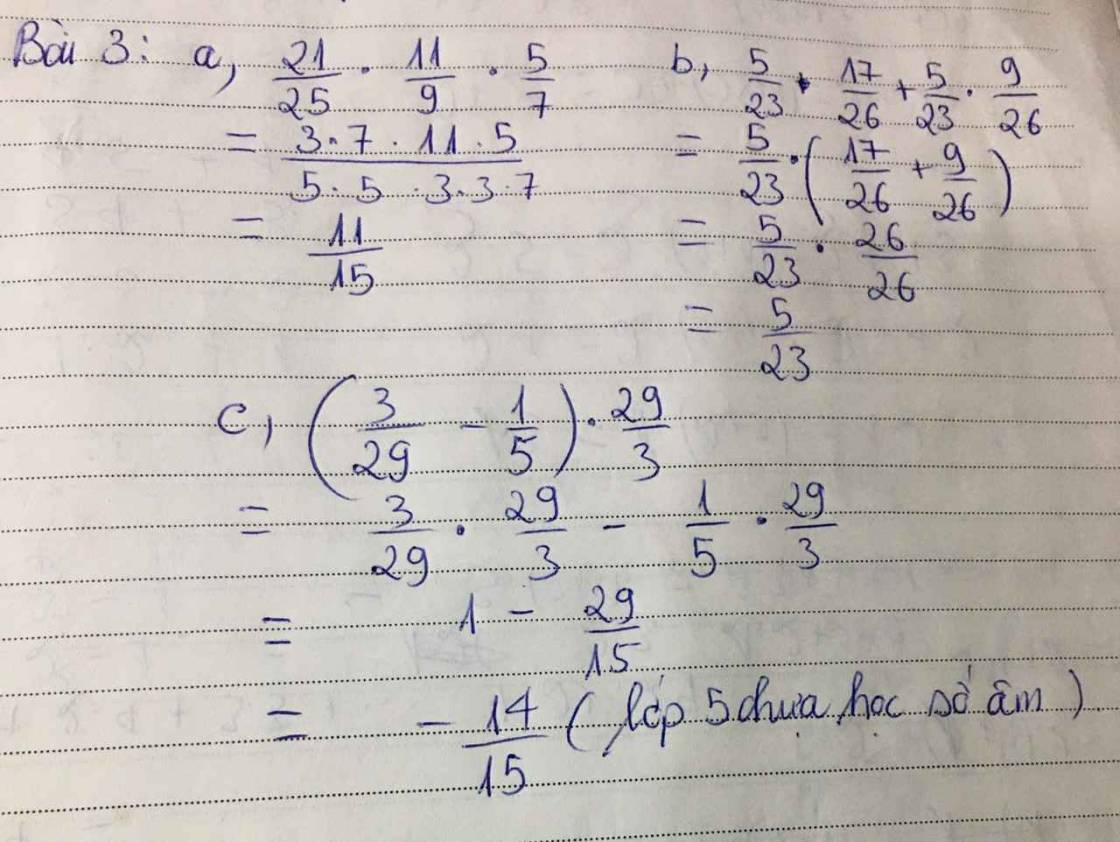 Bài 3: a, 21/25 . 11/9 . 5/7
= 3.7.11.5 / 5.5.3.3.7
= 11/15
b, 5/23 . 17/26 + 5/23 . 9/26
= 5/23 . (17/26 + 9/26)
= 5/23 . 26/26
= 5/23
c, (3/29 - 1/5) . 29/3
= 3/29 . 29/3 - 1/5 . 29/3
= 1 - 29/15
= - 14/15 (lớp 5 chưa học số âm)